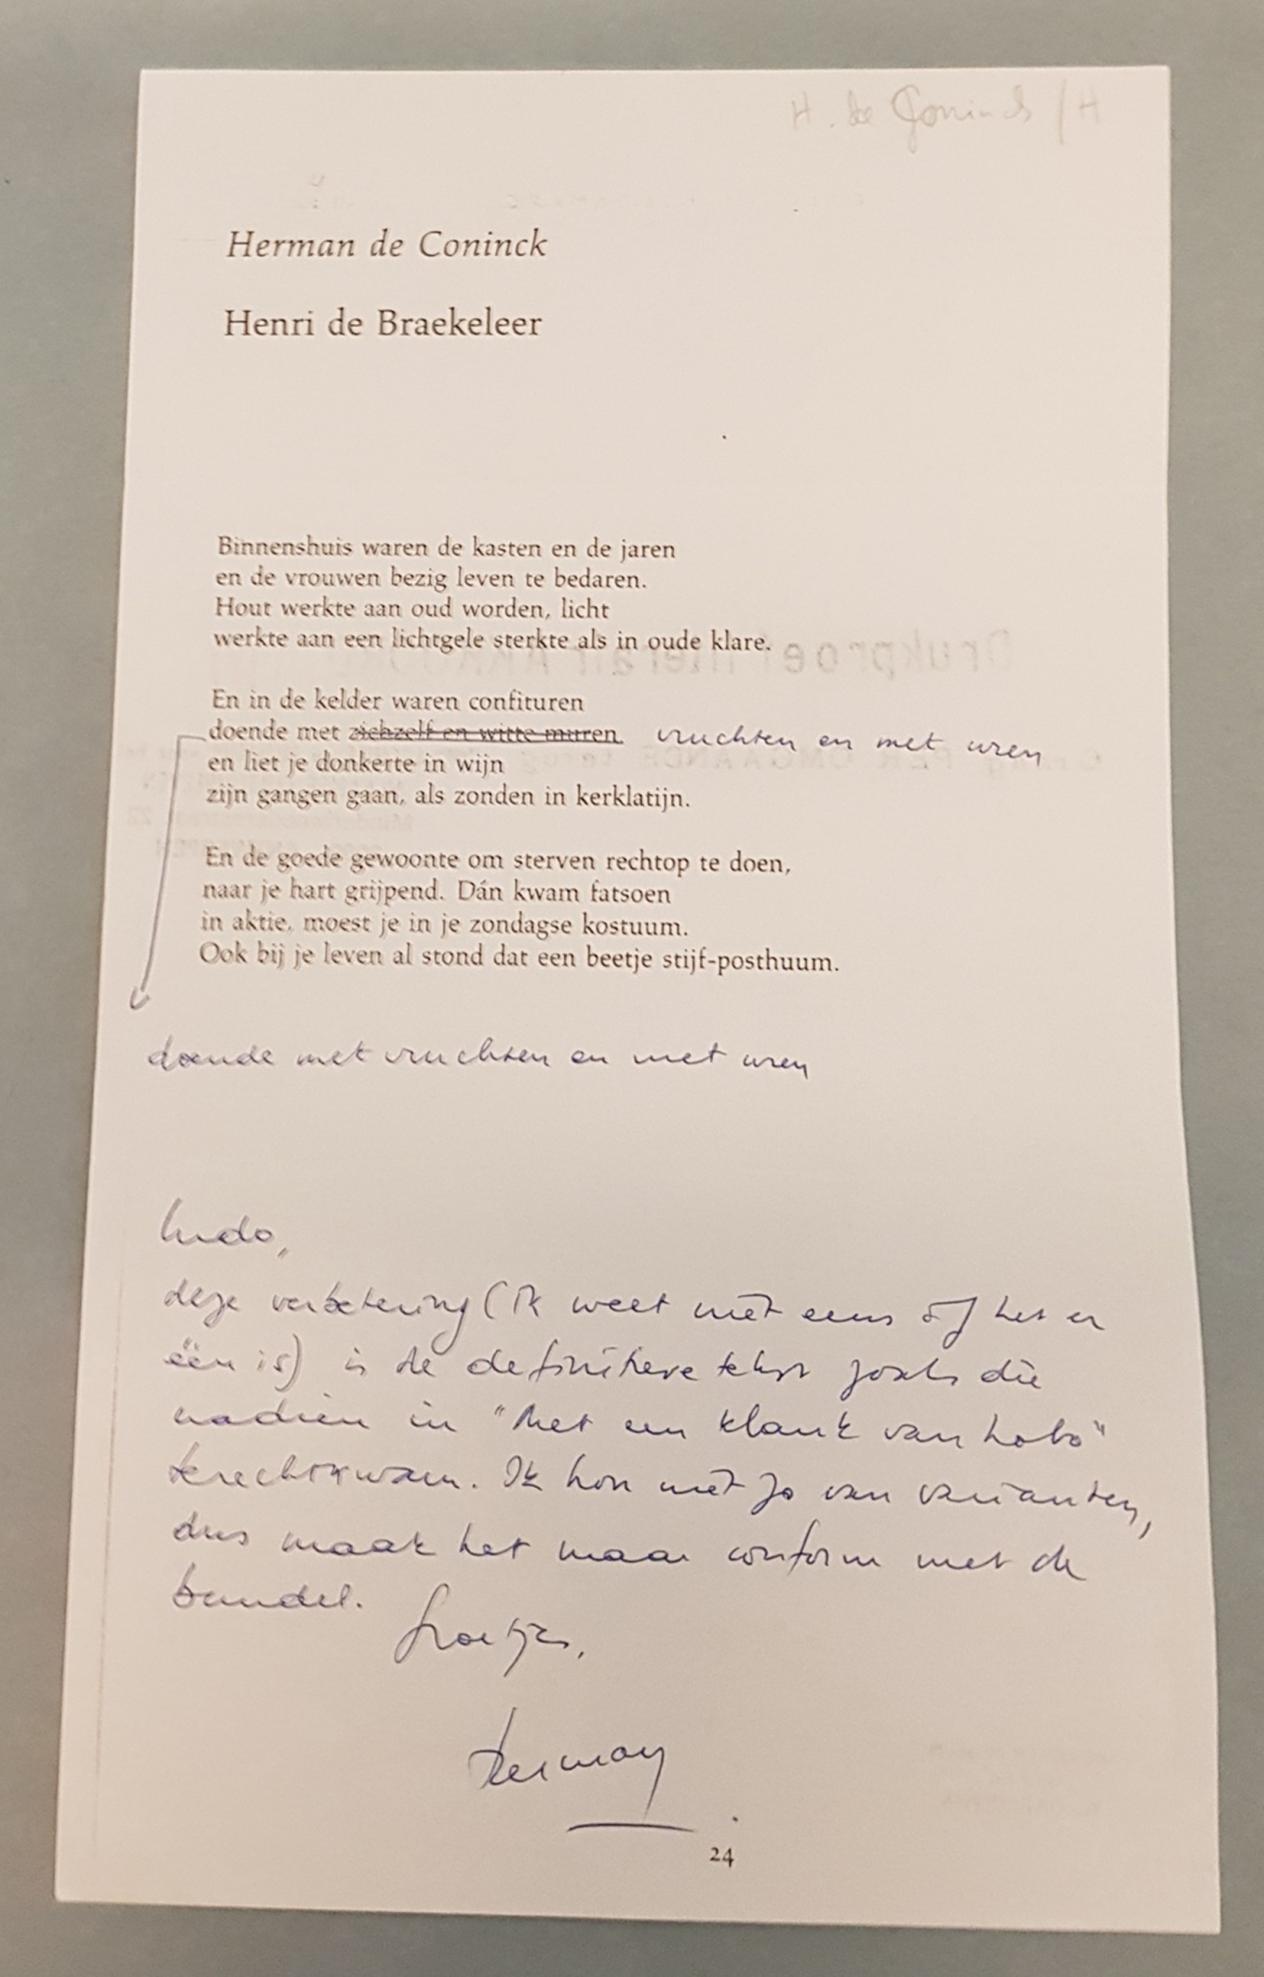 H. de Coninck / H
Herman de Coninck
Henri de Braekeleer
Binnenshuis waren de kasten en de jaren
en de vrouwen bezig leven te bedaren.
Hout werkte aan oud worden, licht
werkte aan een lichtgele sterkte als in oude klare.
En in de kelder waren confituren
doende met zichzelf en witte muren. vruchten en met uren
en liet je donkerte in wijn
zijn gangen gaan, als zonden in kerklatijn.
En de goede gewoonte om sterven rechtop te doen,
naar je hart grijpend. Dán kwam fatsoen
in aktie, moest je in je zondagse kostuum.
Ook bij je leven al stond dat een beetje stijf-posthuum.
doende met vruchten en met uren
Ludo,
deze verbetering (ik weet niet eens of het er
één is) is de definitieve tekst zoals die
nadien in "Met een klank van hobo"
terechtkwam. Ik hou niet zo van varianten,
dus maak het maar conform met de
bundel.
Groetjes,
Herman
24